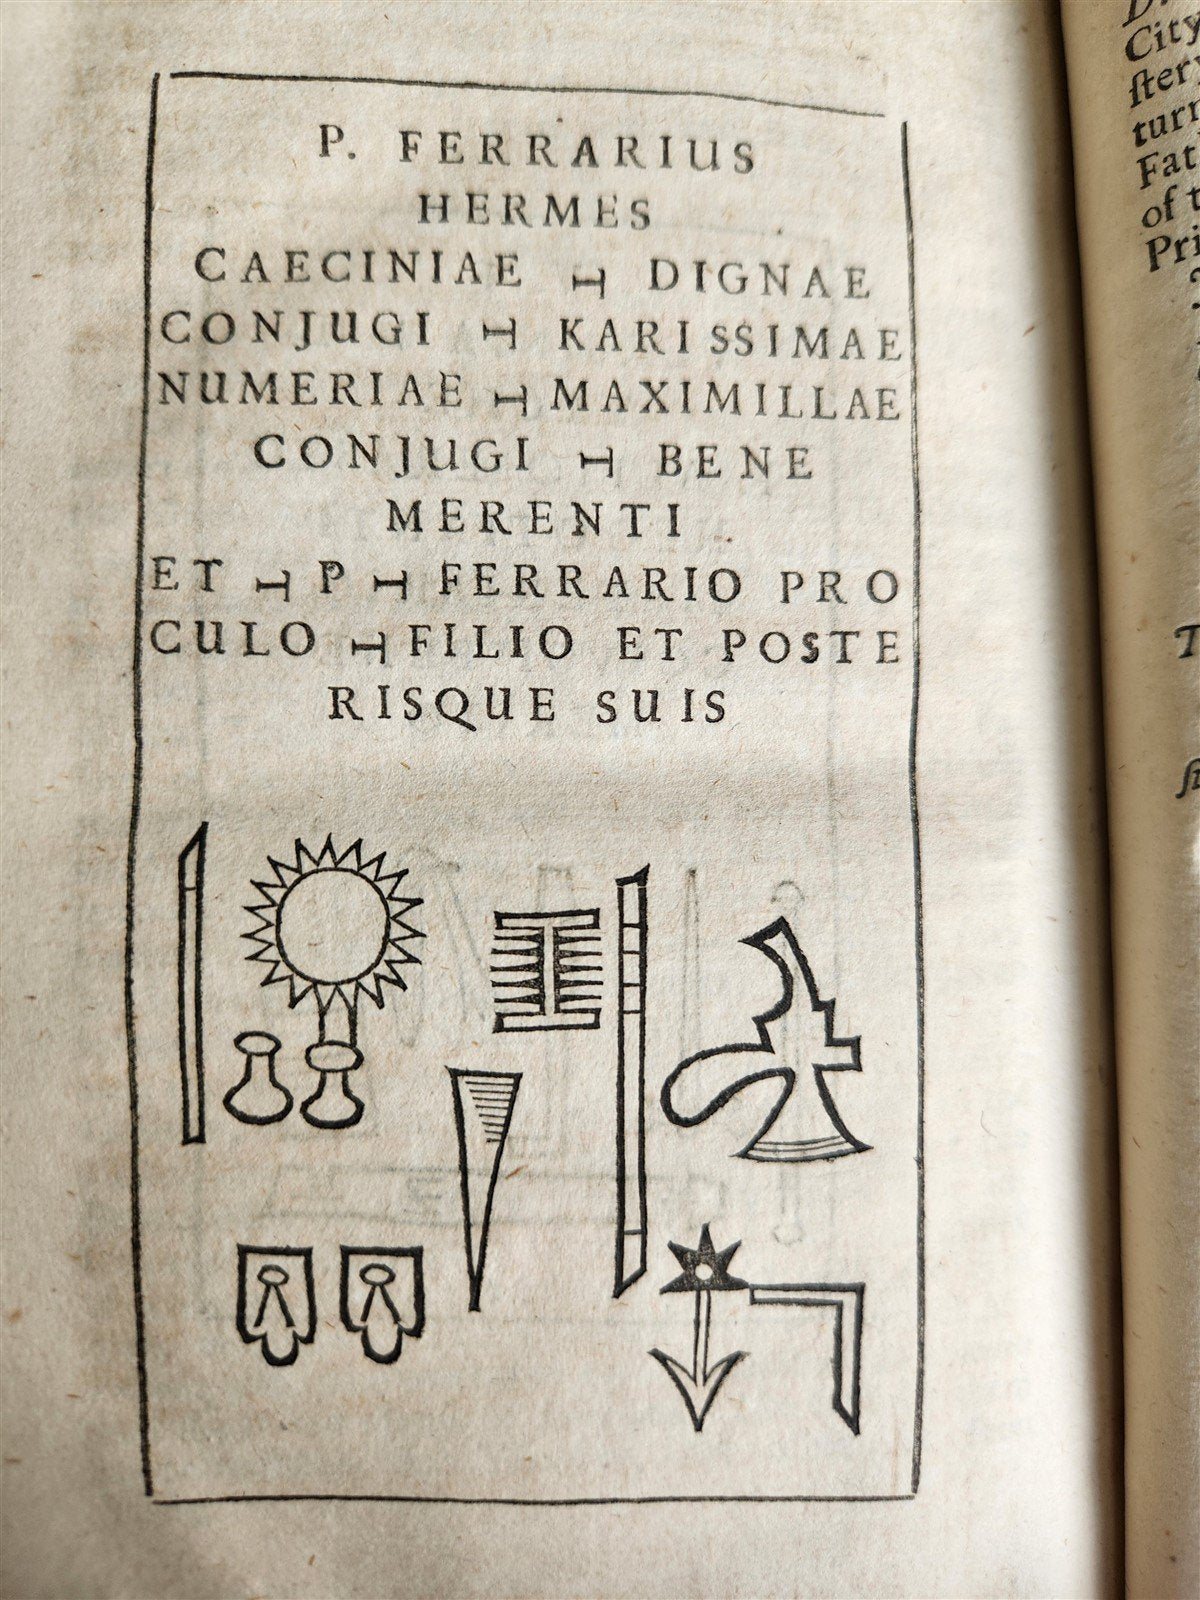 P. FERRARIUS
HERMES
CAECINIAE ⊢ DIGNAE
CONJUGI ⊢ KARISSIMAE
NUMERIAE ⊢ MAXIMILLAE
CONJUGI ⊢ BENE
MERENTI
ET ⊢ P ⊢ FERRARIO PRO
CULO ⊢ FILIO ET POSTE
RISQUE SUIS
City
ſtery
turn
Fat
of t
Pri